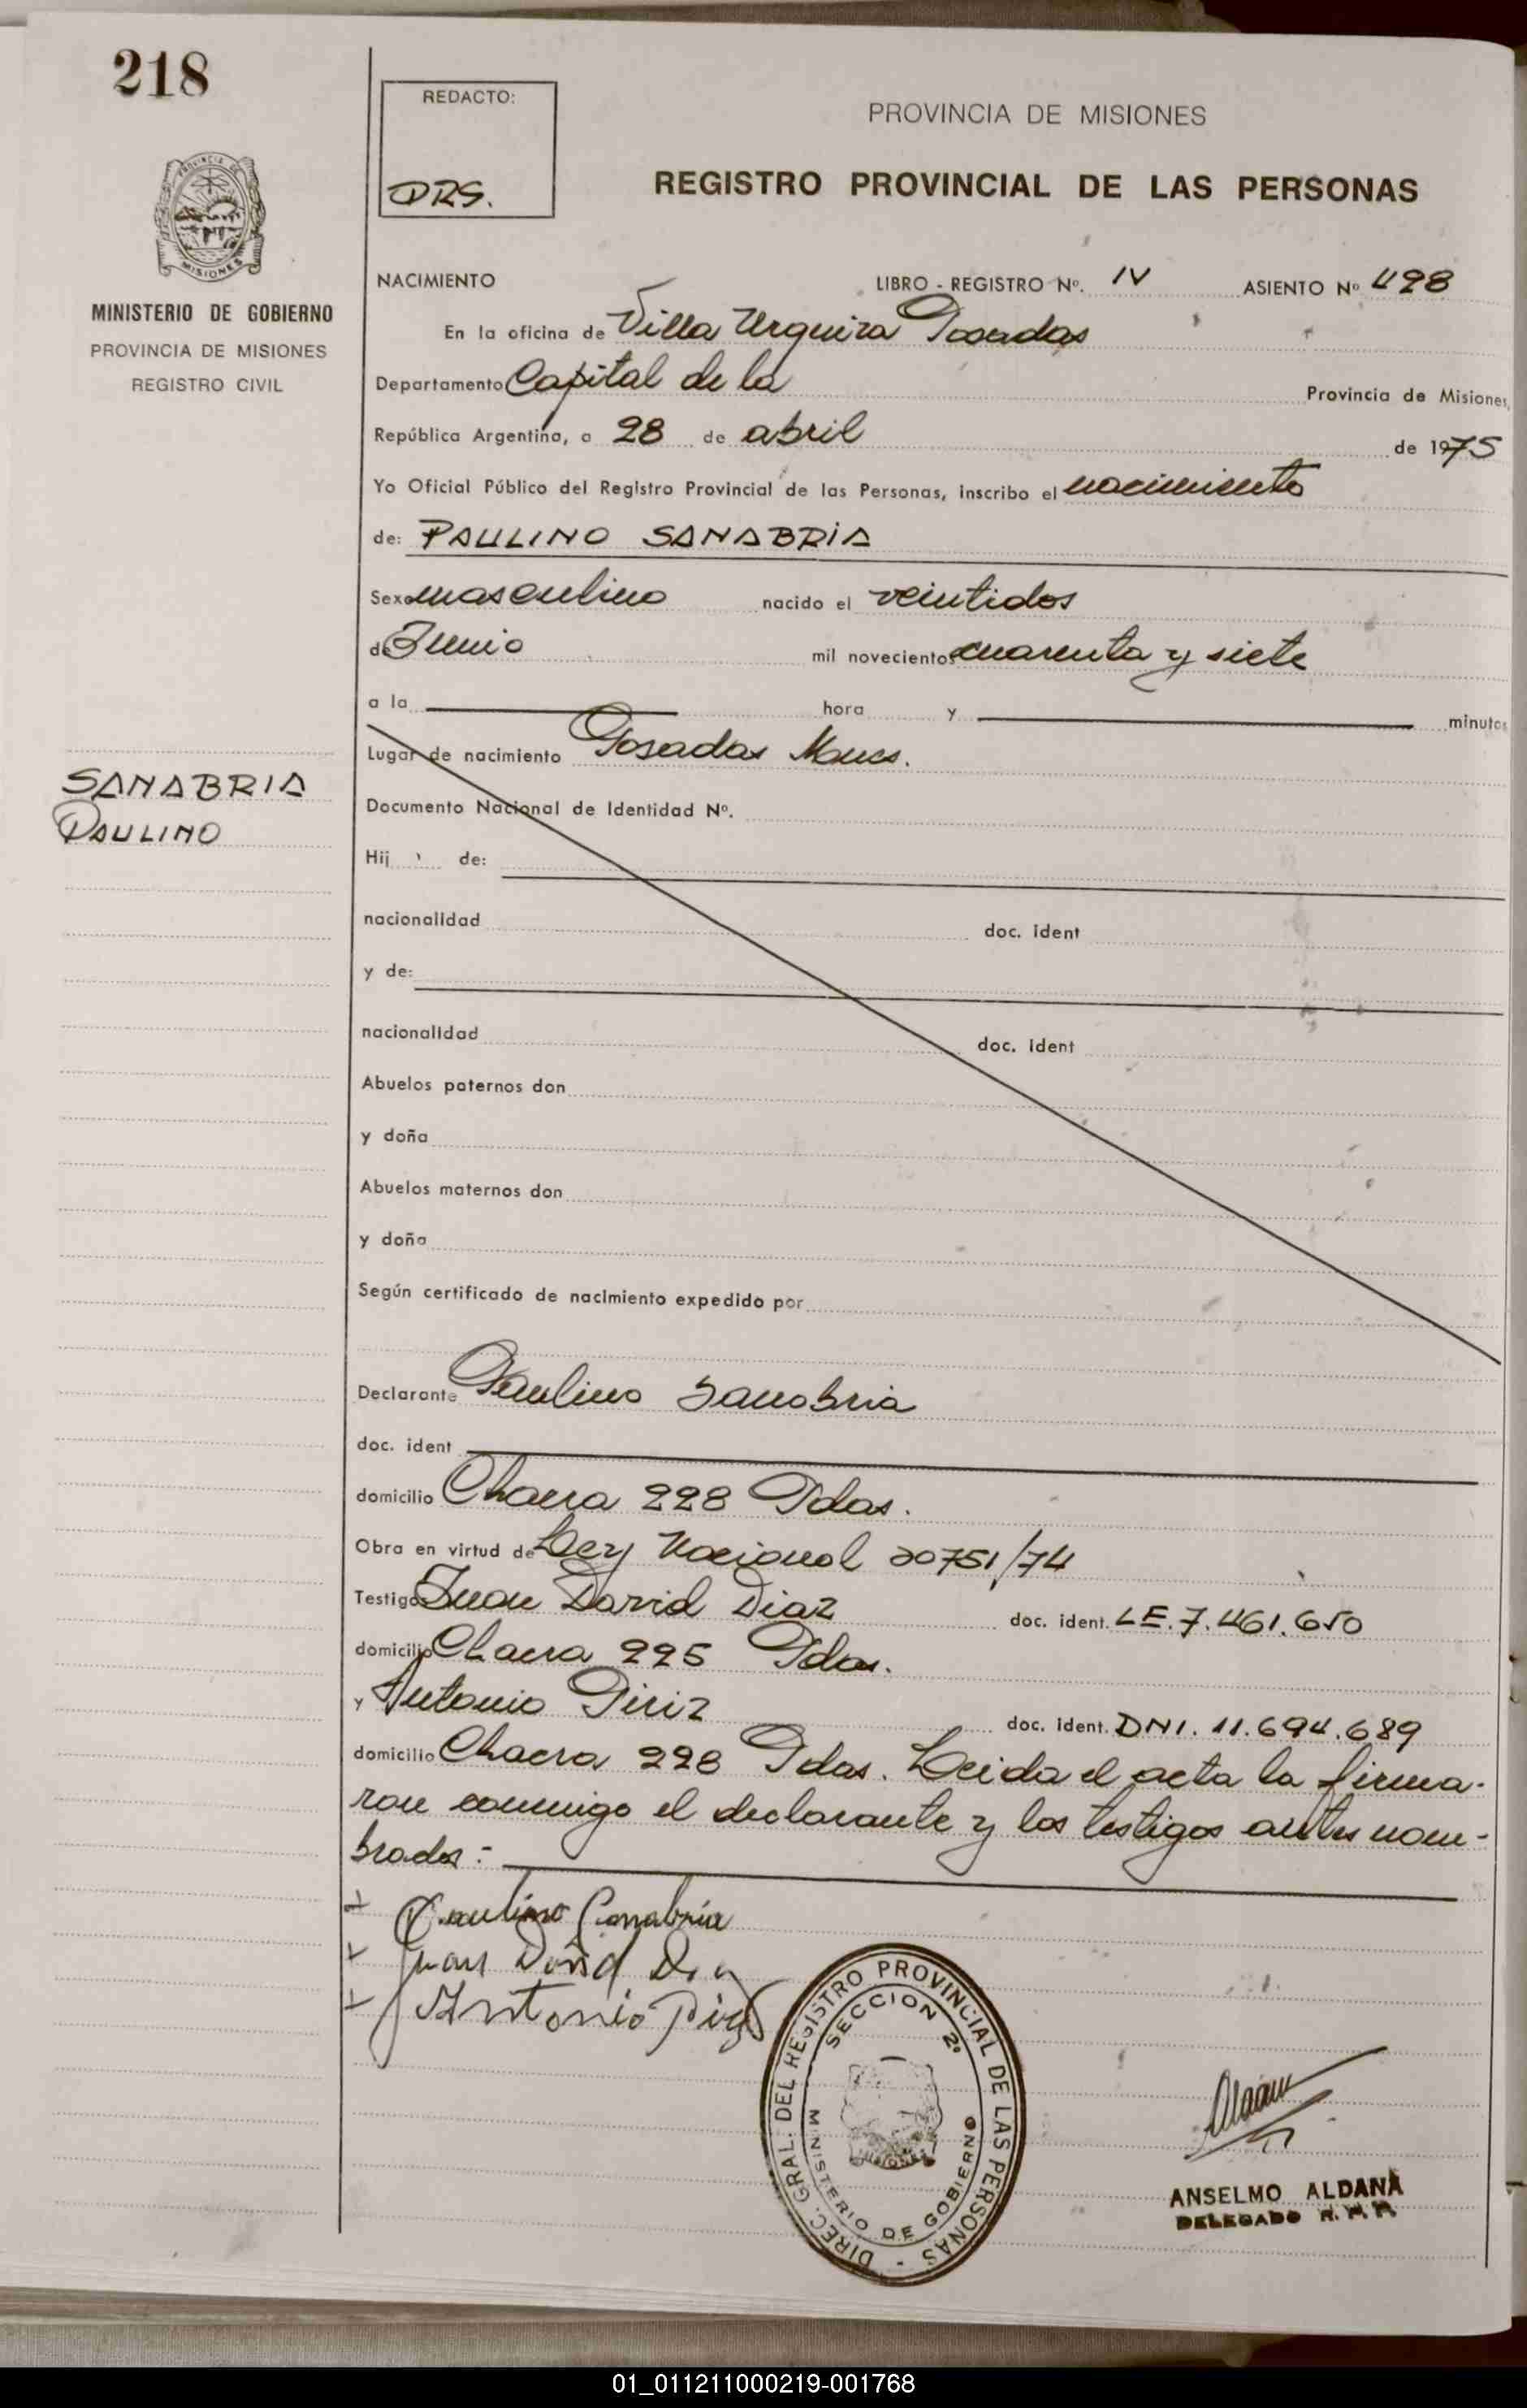 218
REDACTO:
DRS.
PROVINCIA DE MISIONES
REGISTRO PROVINCIAL DE LAS PERSONAS
PROVINCIA DE
MISIONES
MINISTERIO DE GOBIERNO
PROVINCIA DE MISIONES
REGISTRO CIVIL
NACIMIENTO LIBRO - REGISTRO Nº. IV ASIENTO Nº 498
En la oficina de Villa Urquiza Posadas
Departamento Capital de la Provincia de Misiones,
República Argentina, a 28 de abril de 1975
Yo Oficial Público del Registro Provincial de las Personas, inscribo el nacimiento
de: PAULINO SANABRIA
Sexo masculino nacido el veintidos
de Junio mil novecientos cuarenta y siete
a la hora y minutos
Lugar de nacimiento Posadas Mnes.
SANABRIA
PAULINO
Documento Nacional de Identidad Nº.
Hij de:
nacionalidad doc. ident
y de:
nacionalidad doc. ident
Abuelos paternos don
y doña
Abuelos maternos don
y doña
Según certificado de nacimiento expedido por
Declarante Paulino Sanabria
doc. ident
domicilio Chacra 228 Pdas.
Obra en virtud de Ley Nacional 20751/74
Testigos Juan David Diaz doc. ident. LE. 7.461.650
domicilio Chacra 225 Pdas.
y Antonio Piriz doc. ident. DNI. 11.694.689
domicilio Chacra 228 Pdas. Leida el acta la firma-
ron conmigo el declarante y los testigos antes nom-
brados:-
Paulino Sanabria
Juan David
Antonio
DIREC. GRAL. DEL REGISTRO PROVINCIAL DE LAS PERSONAS -
SECCION 2º
MINISTERIO DE GOBIERNO
MISIONES
ANSELMO ALDANA
DELEGADO R. P. P.
01_011211000219-001768